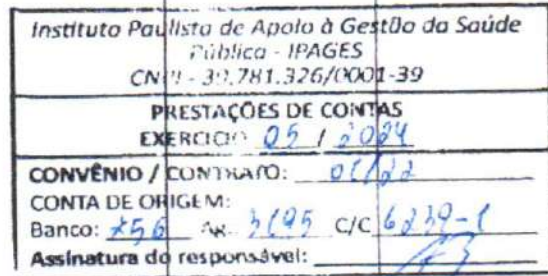 Instituto Paulista de Apoio à Gestão da Saúde
Pública - IPAGES
CNPJ - 39.781.326/0001-39
PRESTAÇÕES DE CONTAS
EXERCICIO: 05 / 2024
CONVÊNIO / CONTRATO: 01/22
CONTA DE ORIGEM:
Banco: 756 AG. 3195 C/C 6239-1
Assinatura do responsável: